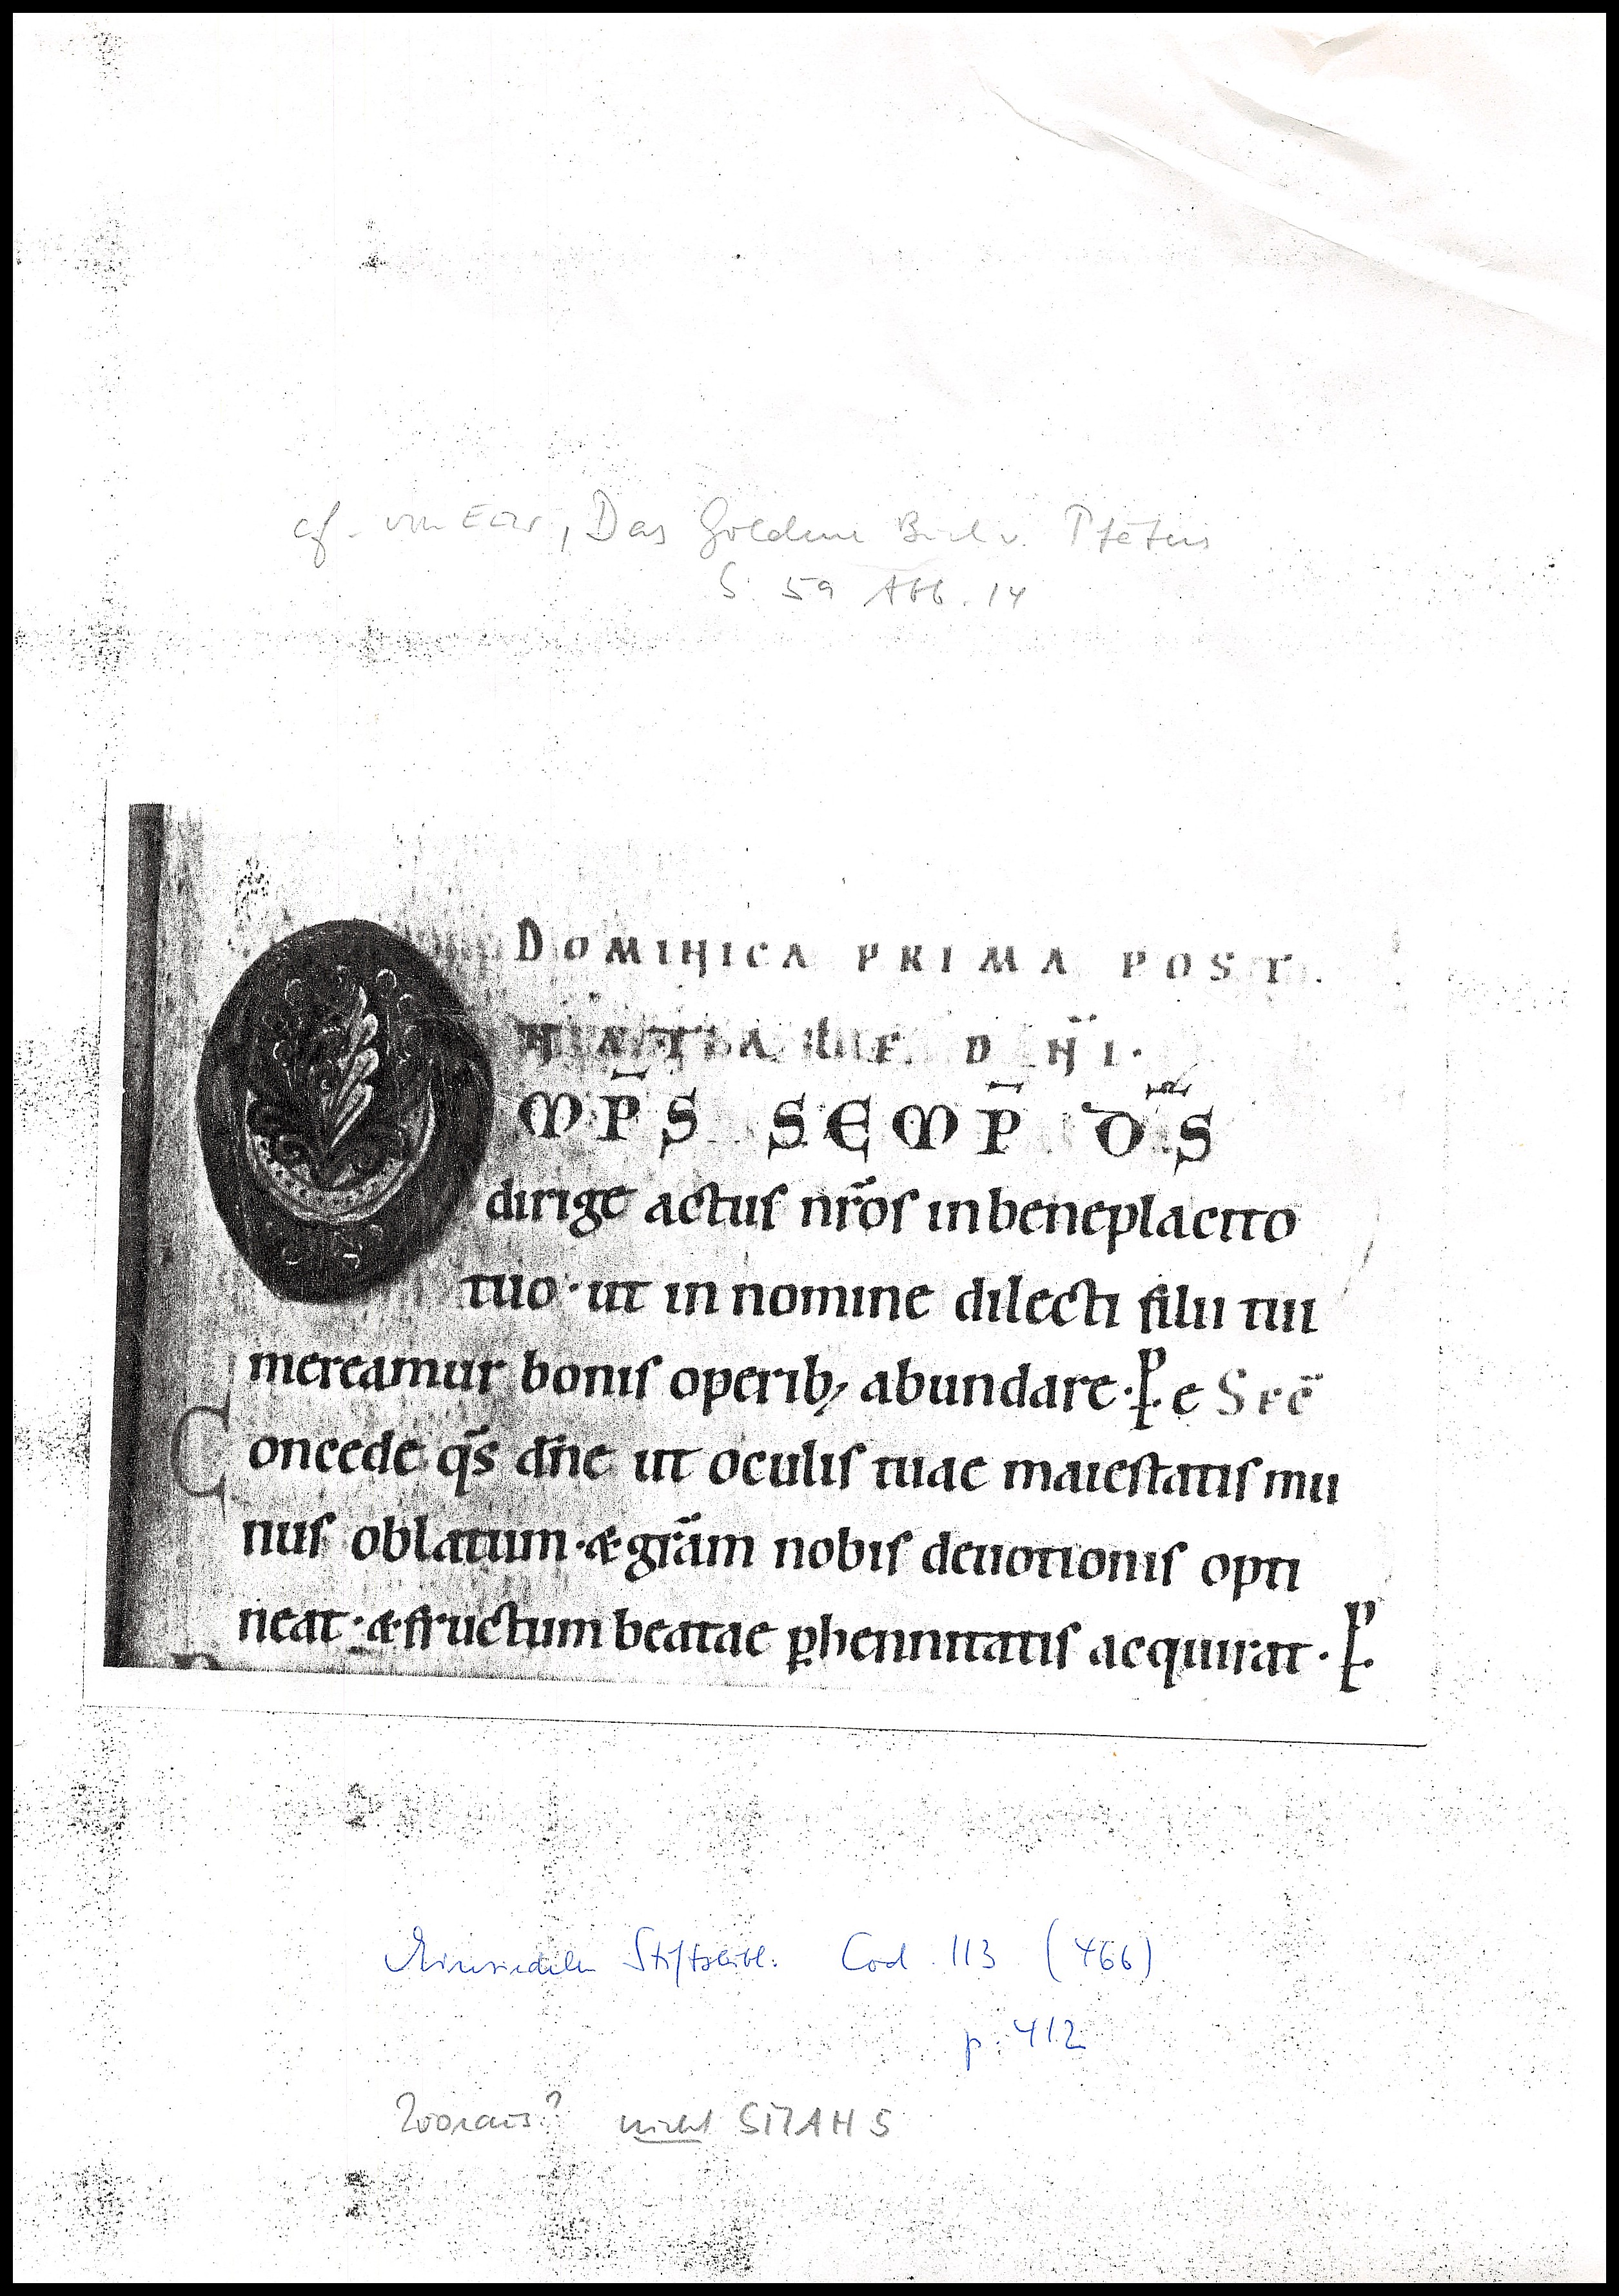 cf. von Euw, Das Goldene Buch v. Pfäfers
S. 59 Abb. 14
DOMINICA PRIMA POST.
NATIVITATE DN̄I.
OMP̄S SEMP̄ D̄S
dirige actus nr̄os in beneplacito
tuo · ut in nomine dilecti filii tui
mereamur bonis operib; abundare · P. e SEC̄
Concede qs̄ dn̄e ut oculis tuae maiestatis mu
nus oblatum · & gr̄am nobis deuotionis opti
neat · & fructum beatae ꝑhennitatis acquirat · P.
Einsiedeln Stiftsbibl. Cod. 113 (466)
p. 412
Woraus? nicht SMAH 5